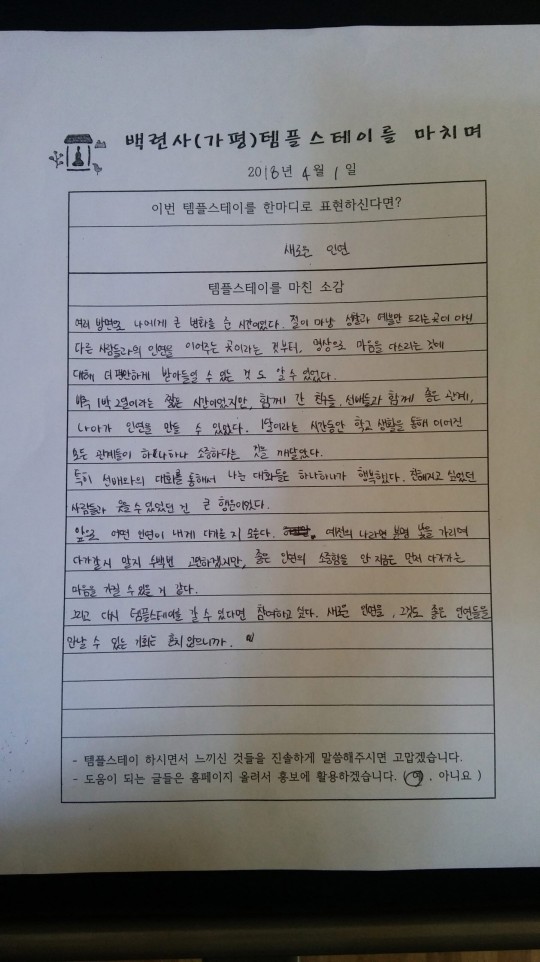 백련사(가평)템플스테이를 마치며
2018년 4월 1일
이번 템플스테이를 한마디로 표현하신다면?
새로운 인연
템플스테이를 마친 소감
여러 방면으로 나에게 큰 변화를 준 시간이었다. 절이 마냥 생활과 예불만 드리는 곳이 아닌
다른 사람들과의 인연을 이어주는 곳이라는 것부터, 명상으로 마음을 다스리는 것에
대해 더 편안하게 받아들일 수 있는 것 도 알 수 있었다.
비록 1박 2일이라는 짧은 시간이었지만, 함께 간 친구들, 선배들과 함께 좋은 관계,
나아가 인연을 만들 수 있었다. 1달이라는 시간동안 학교 생활을 통해 이어진
모든 관계들이 하나하나 소중하다는 것을 깨달았다.
특히 선배와의 대화를 통해서 나눈 대화들은 하나하나가 행복했다. 친해지고 싶었던
사람들과 웃을 수 있었던 건 큰 행운이었다.
앞으로 어떤 인연이 내게 다가올 지 모른다. 예전의 나라면 분명 낯을 가리며
다가갈지 말지 수백번 고민하겠지만, 좋은 인연의 소중함을 안 지금은 먼저 다가가는
마음을 가질 수 있을 거 같다.
그리고 다시 템플스테이를 갈 수 있다면 참여하고 싶다. 새로운 인연을, 그것도 좋은 인연들을
만날 수 있는 기회는 흔치 않으니까.
- 템플스테이 하시면서 느끼신 것들을 진솔하게 말씀해주시면 고맙겠습니다.
- 도움이 되는 글들은 홈페이지 올려서 홍보에 활용하겠습니다. ( 예 , 아니요 )